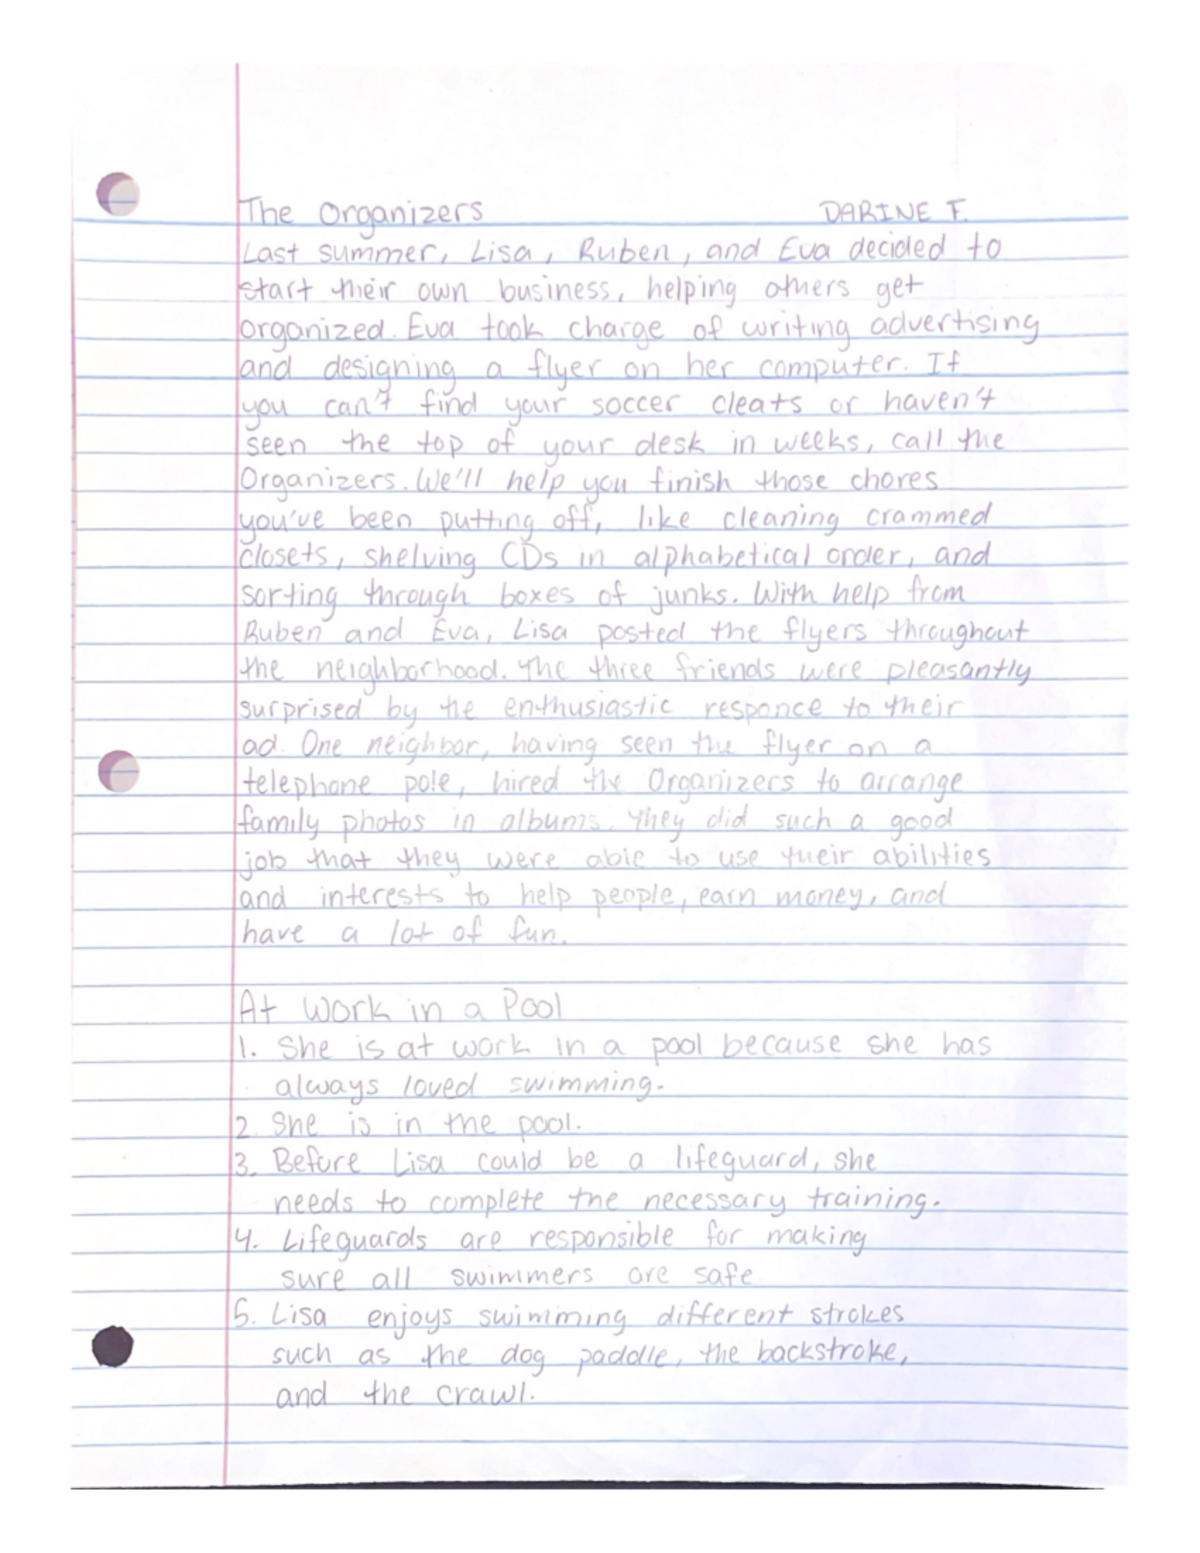 The Organizers DARINE F.
Last summer, Lisa, Ruben, and Eva decided to
start their own business, helping others get
organized. Eva took charge of writing advertising
and designing a flyer on her computer. If
you can't find your soccer cleats or haven't
seen the top of your desk in weeks, call the
Organizers. We'll help you finish those chores
you've been putting off, like cleaning crammed
closets, shelving CDs in alphabetical order, and
sorting through boxes of junks. With help from
Ruben and Eva, Lisa posted the flyers throughout
the neighborhood. The three friends were pleasantly
surprised by the enthusiastic responce to their
ad. One neighbor, having seen the flyer on a
telephone pole, hired the Organizers to arrange
family photos in albums. They did such a good
job that they were able to use their abilities
and interests to help people, earn money, and
have a lot of fun.
At Work in a Pool
1. She is at work in a pool because she has
always loved swimming.
2. She is in the pool.
3. Before Lisa could be a lifeguard, she
needs to complete the necessary training.
4. Lifeguards are responsible for making
sure all swimmers are safe
5. Lisa enjoys swimming different strokes
such as the dog paddle, the backstroke,
and the crawl.